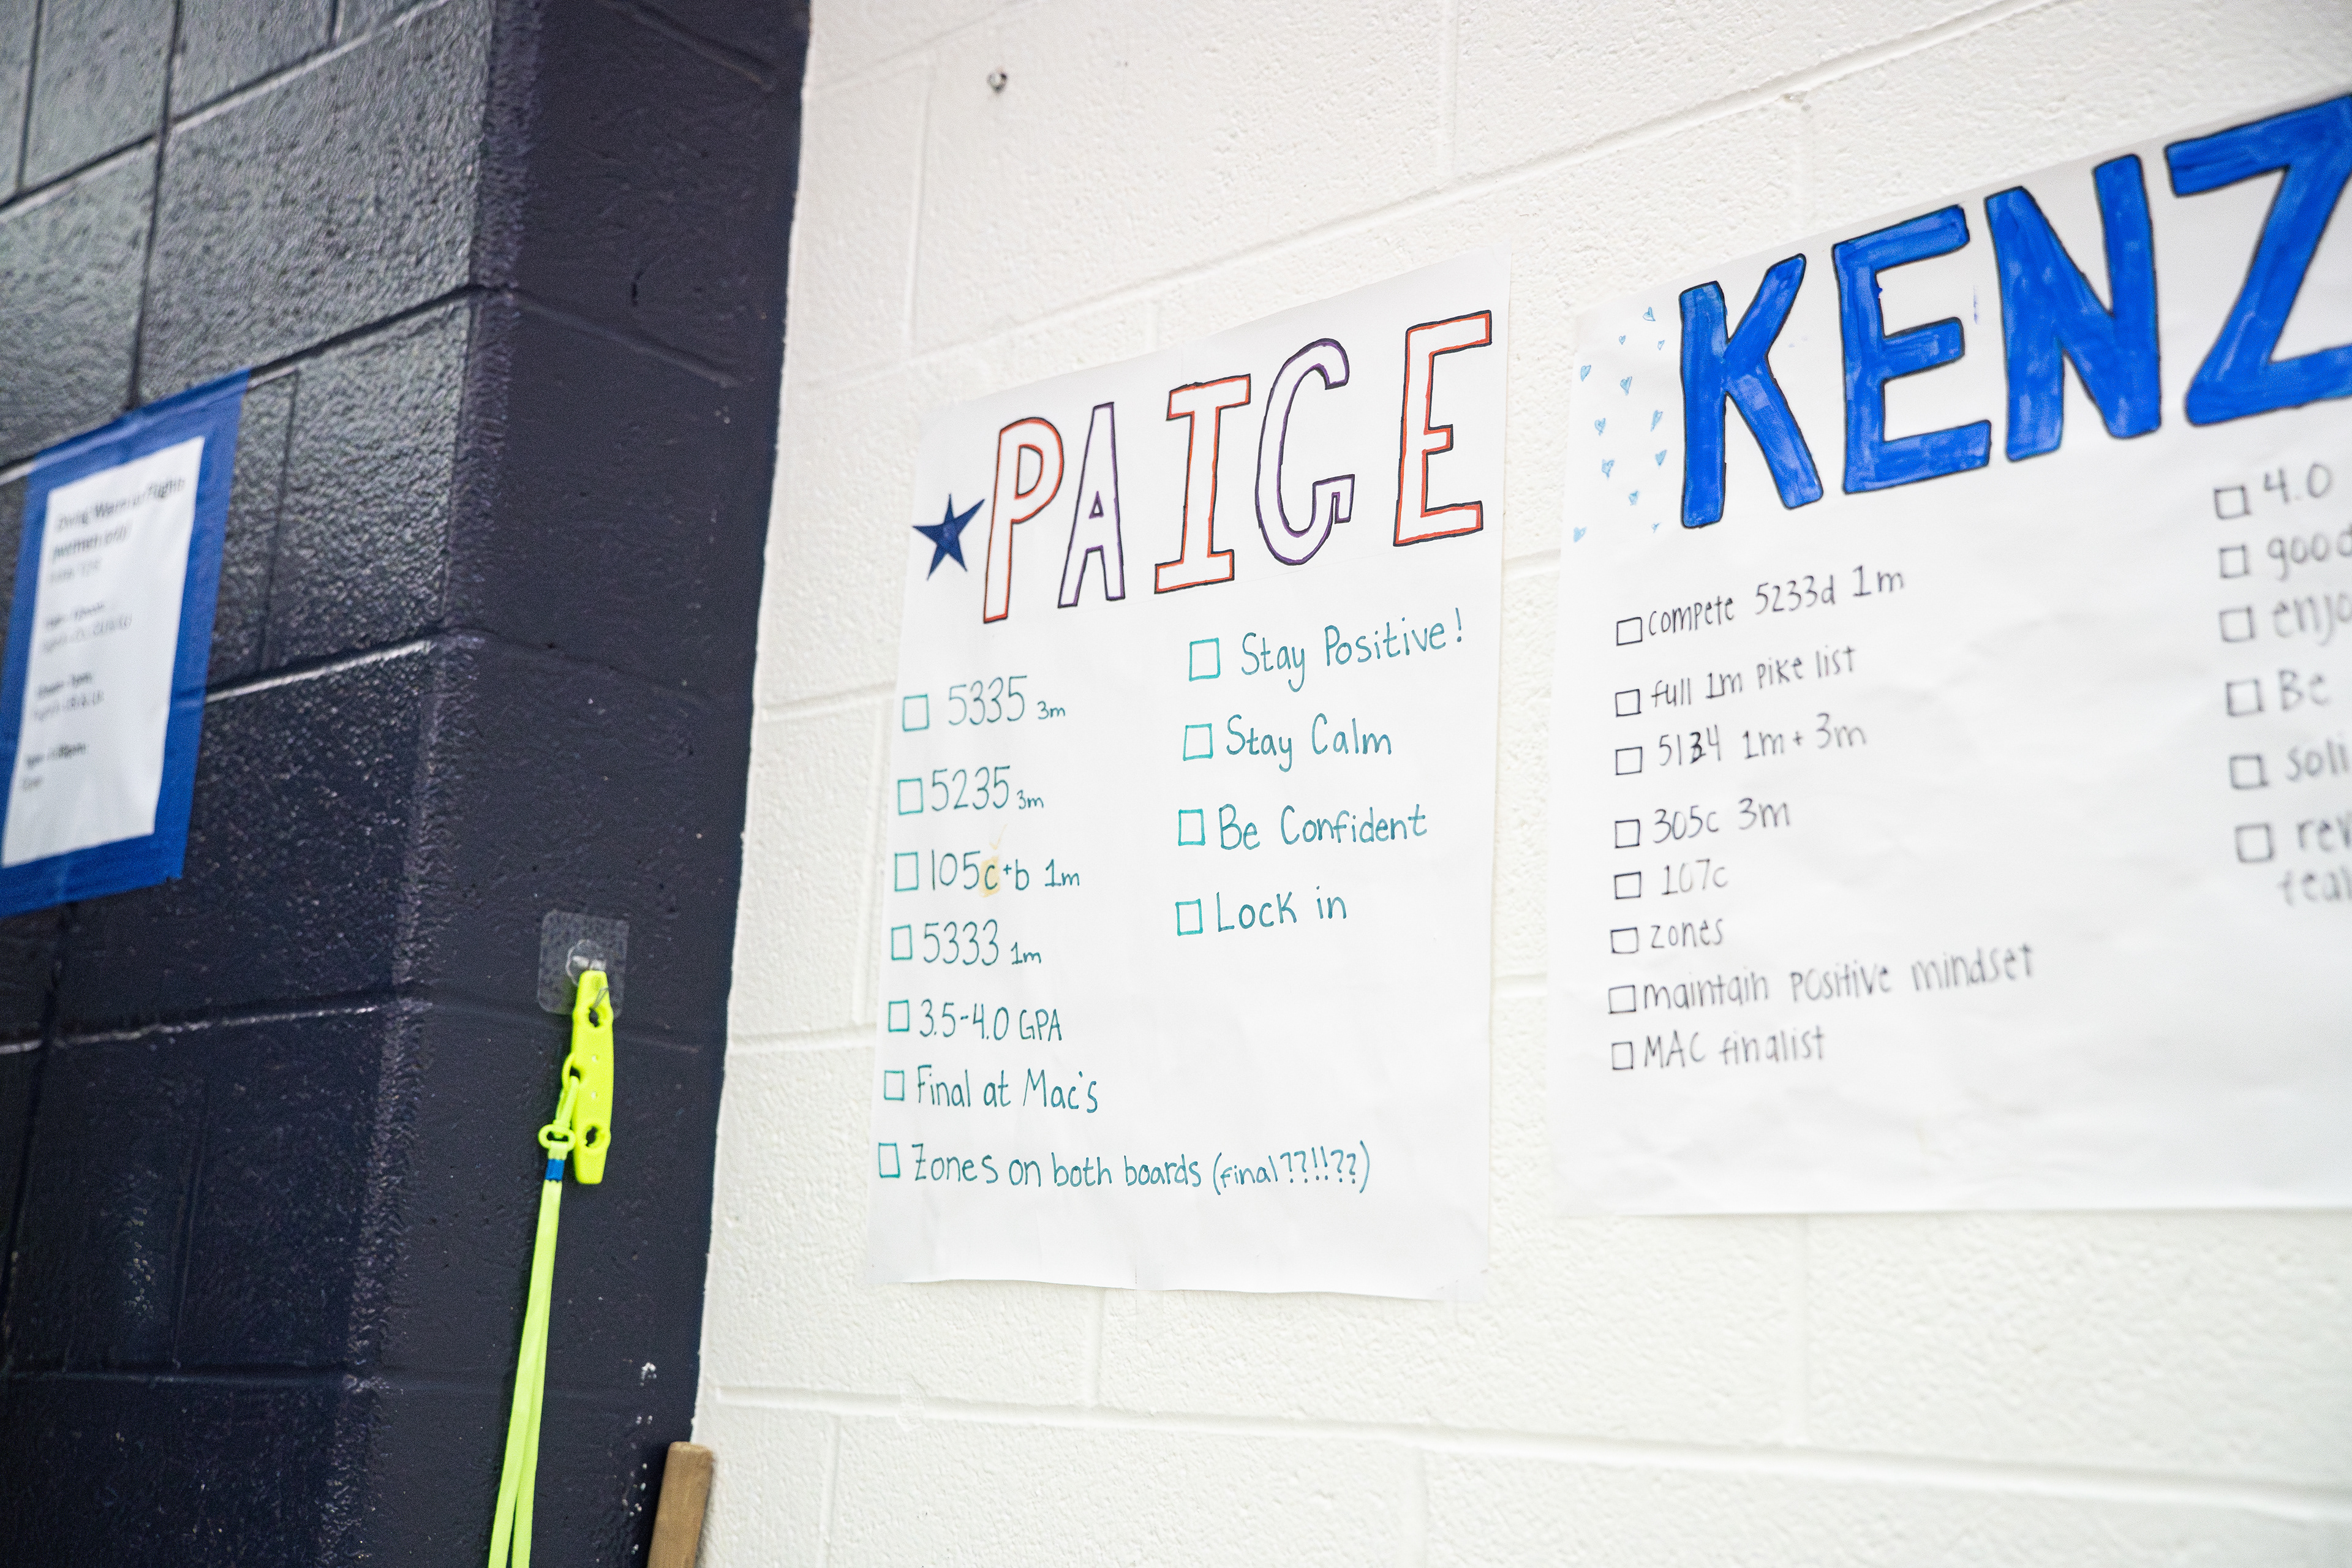 PAIGE
5335 3m
5235 3m
105c+b 1m
5333 1m
3.5-4.0 GPA
Final at Mac's
Zones on both boards (final??!!??)
Stay Positive!
Stay Calm
Be Confident
Lock in
KENZ
compete 5233d 1m
full 1m pike list
5134 1m+3m
305c 3m
107c
zones
maintain positive mindset
MAC finalist
4.0
good
Be